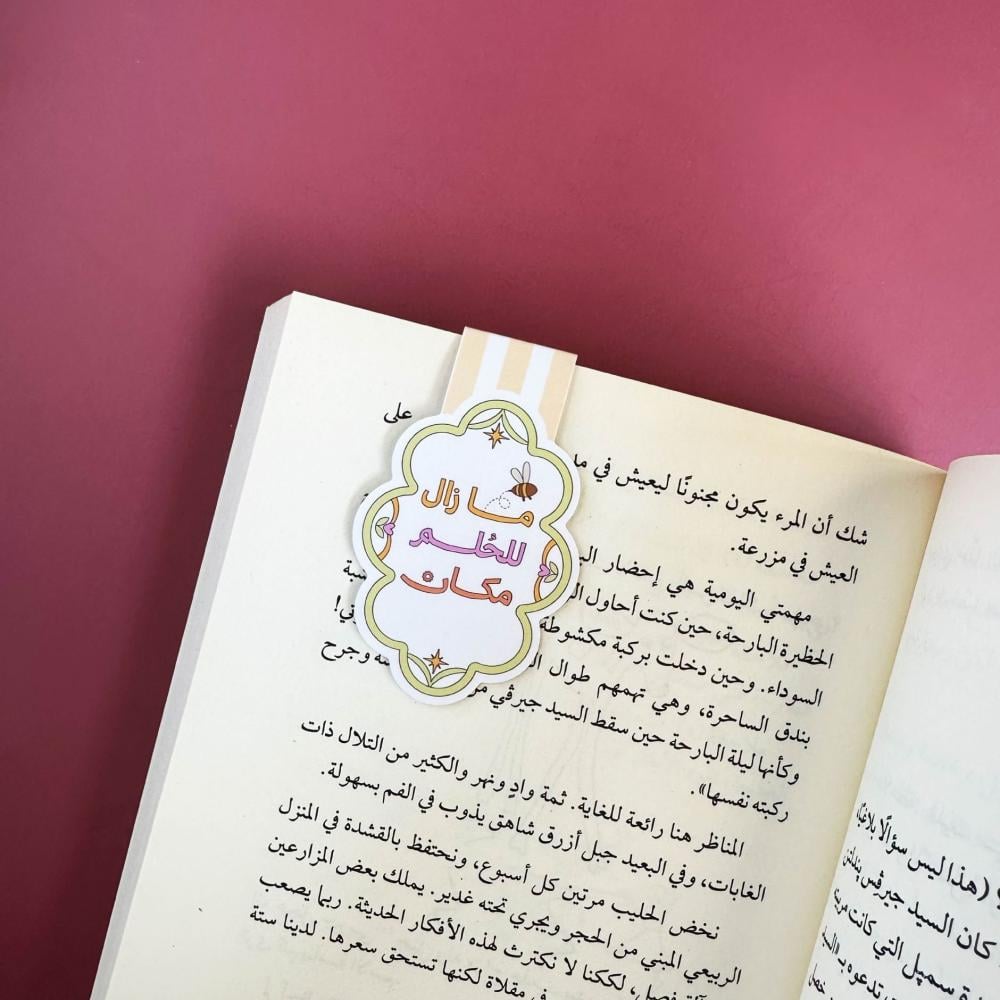 ما زال
للحُلم
مكان
على
شك أن المرء يكون مجنونًا ليعيش في
العيش في مزرعة.
مهمتي اليومية هي إحضار
الحظيرة البارحة، حين كنت أحاول
السوداء. وحين دخلت بركبة مكشوطة
بندق الساحرة، وهي تهمهم طوال
وكأنها ليلة البارحة حين سقط السيد جيرڤي وجرح
ركبته نفسها».
المناظر هنا رائعة للغاية. ثمة وادٍ ونهر والكثير من التلال ذات
الغابات، وفي البعيد جبل أزرق شاهق يذوب في الفم بسهولة.
نخض الحليب مرتين كل أسبوع، ونحتفظ بالقشدة في المنزل
الربيعي المبني من الحجر ويجري تحته غدير. يملك بعض المزارعين
فصيل، لككنا لا نكترث لهذه الأفكار الحديثة. ربما يصعب
في مقلاة لكنها تستحق سعرها. لدينا ستة
(هذا ليس سؤالًا بلاغيًا،
كان السيد جيرڤس پندلتن
سمپل التي كانت
تدعوه بـ